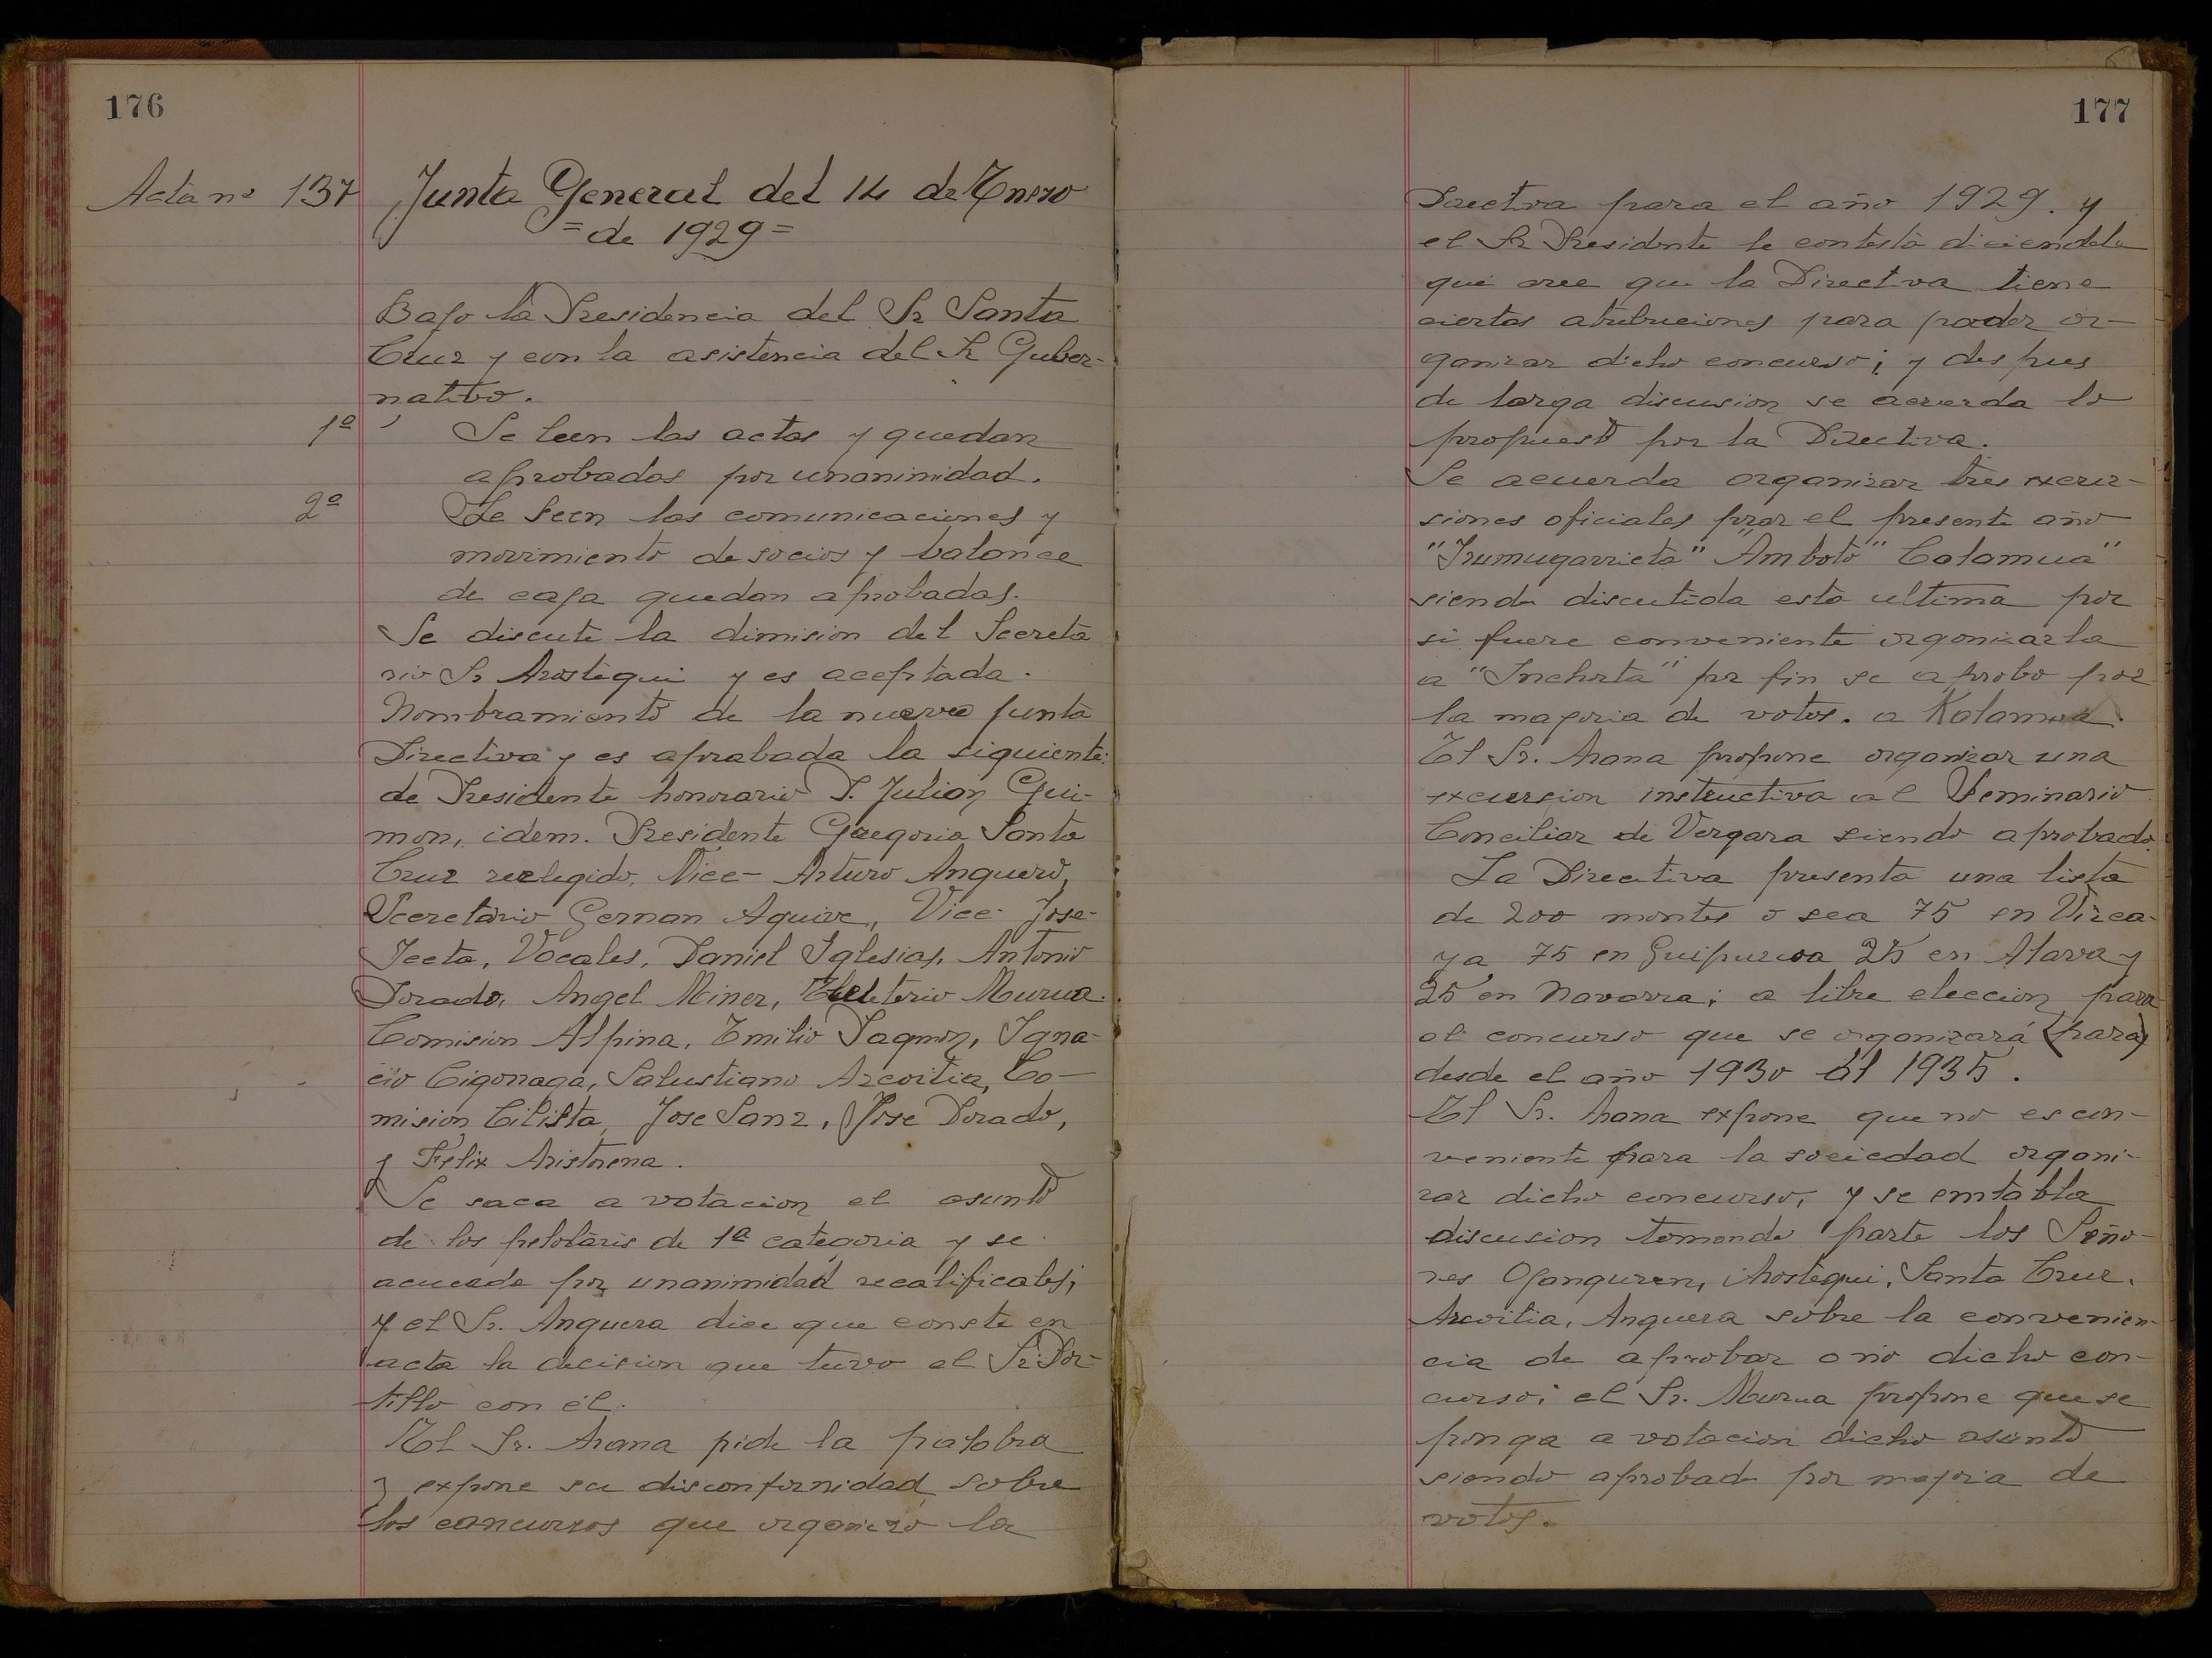 176
Acta nº 137
Junta General del 14 de Enero
= de 1929 =
Bajo la Presidencia del Sr Santa
Cruz y con la asistencia del Sr Guber-
nativo.
1º Se leen las actas y quedan
aprobadas por unanimidad.
2º Se leen las comunicaciones y
movimiento de socios y balance
de caja quedan aprobadas.
Se discute la dimision del Secreta
rio Sr Arostegui y es aceptada.
Nombramiento de la nueva junta
Directiva y es aprabada la siguiente:
de Presidente honorario D. Julian Gui-
mon, idem. Presidente Gregorio Santa
Cruz reelegido, Vice- Arturo Anguera,
Secretario German Aguire, Vice- Jose-
Iceta, Vocales, Daniel Iglesias, Antonio
Dorado, Angel Miner, Eleuterio Murua.
Comision Alpina, Emilio Igna-
cio Cigonaga, Salustiano Arcoitia, Co-
mision Cilista, Jose Sanz, Jose Dorado,
y Felix Aristorena.
Se saca a votacion el asunto
de los pelotaris de 1ª categoria y se
acuerda por unanimidad recalificales;
y el Sr. Anguera dice que conste en
acta la decision que tuvo el Sr. Por-
tillo con él.
El Sr. Arana pide la palabra
y expone su disconfornidad sobre
los concursos que organizó la
177
Directva para el año 1929. y
el Sr Presidente le contesta diciendole
que cree que la Directva tiene
ciertas atribuciones para poder or-
ganizar dicho concurso; y des pues
de larga discusion se acuerda lo
propuesto por la Directiva.
Se acuerda organizar tres excur-
siones oficiales por el presente año
"Irumugarrieta" "Amboto" Calamua"
siendo discutida esta ultima por
si fuere conveniente organizarla
a "Inchorta" por fin se aprobo por
la mayoria de votos. a Kalamua.
El Sr. Arana propone organizar una
excursion instructiva al Seminario
Conciliar de Vergara siendo aprobado.
La Directiva presenta una lista
de 200 montes o sea 75 en Vizca-
ya, 75 en Guipuzcoa 25 en Alava y
25 en Navarra; a libre eleccion para
el concurso que se organizará (para)
desde el año 1930 al 1935.
El Sr. Arana expone que no es con-
veniente para la sociedad organi-
zar dicho concurso, y se entabla
discusion tomando parte los Seño-
res Oanguren, Arostegui, Santa Cruz,
Arcoitia, Anguera sobre la convenien-
cia de aprobar o no dicho con-
curso; el Sr. Murua propone que se
ponga a votacion dicho asunto
siendo aprobado por mayoria de
votos.